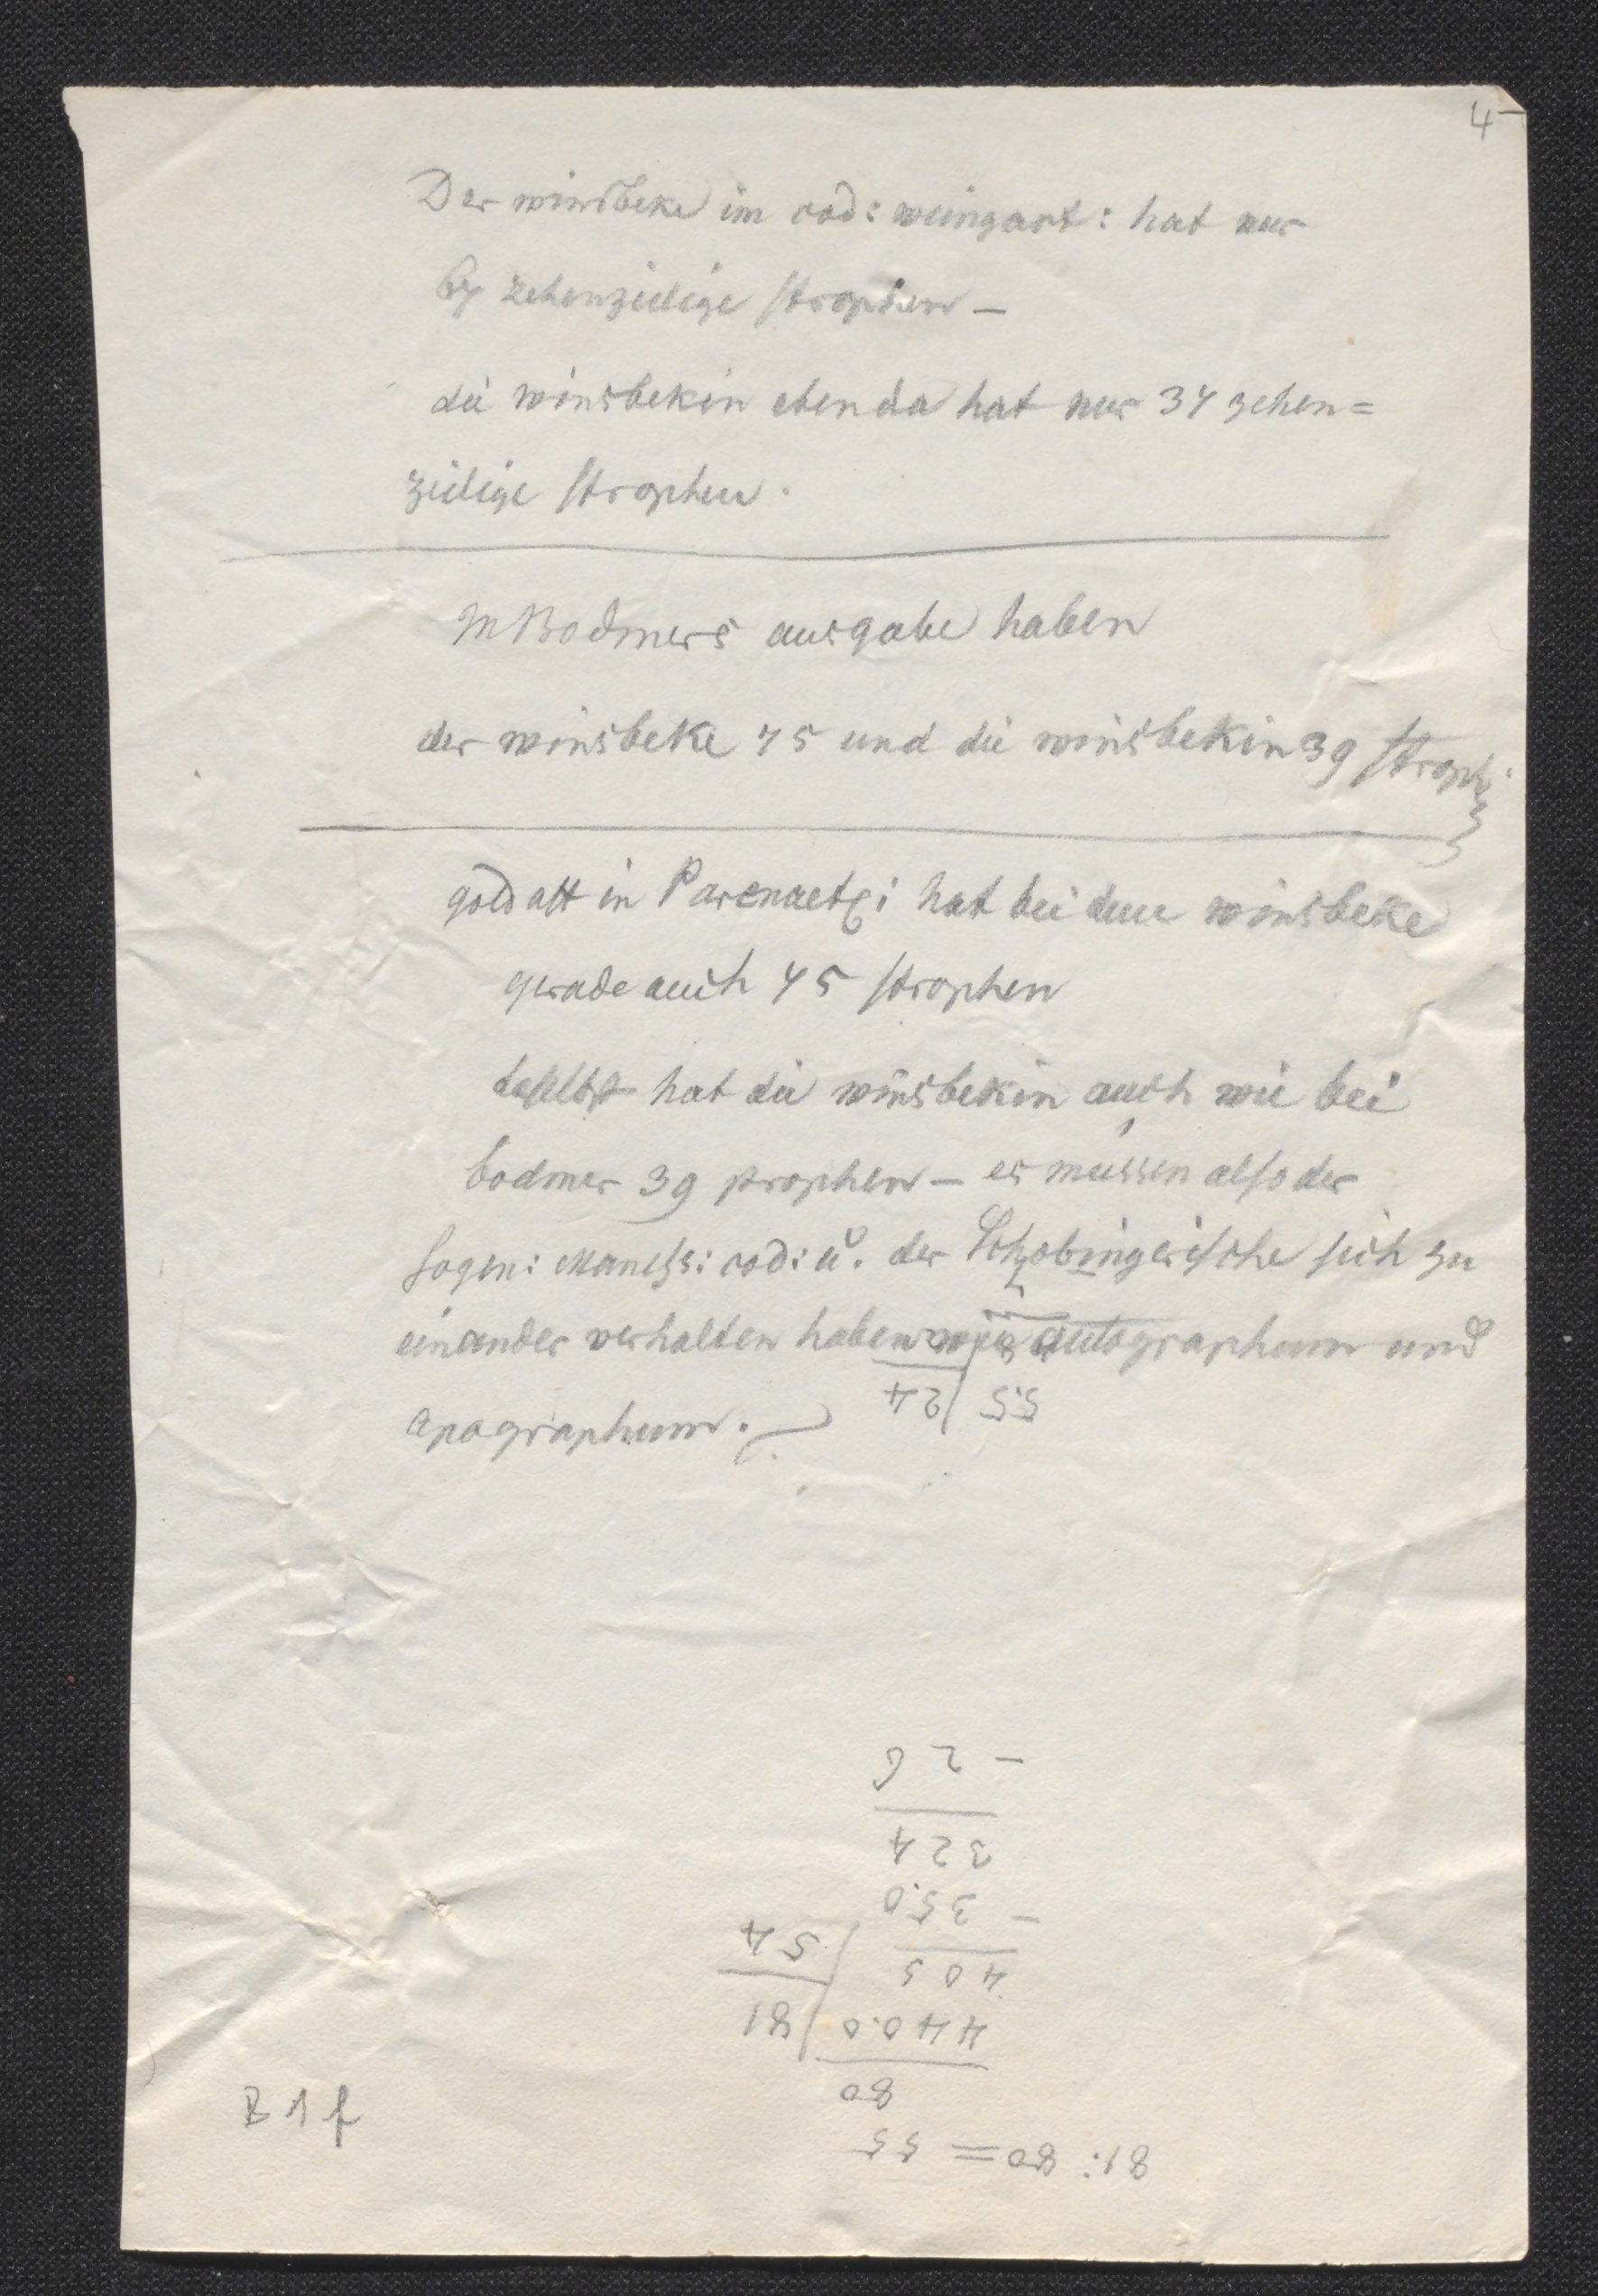 4
Der winsbeke im cod: weingart: hat nur
zehenzeilige strophen –
die winsbekin ebenda hat nur 34 zehen=
zeilige strophen.
In Bodmers ausgabe haben
der winsbeke 75 und die winsbekin 39 stroph:
goldast in Paraenet: hat bei dem winsbeke
gerade auch 75 strophen
daselbst hat die winsbekin auch wie bei
bodmer 39 strophen – es müssen also der
sogen: Maness: cod: u. der Schobingerische sich zu
einander verhalten haben wie autographum und
apographum.
24 55
– 26
324
– 350
54
405
81 4400
80
81: 80 = 55
B 1 f